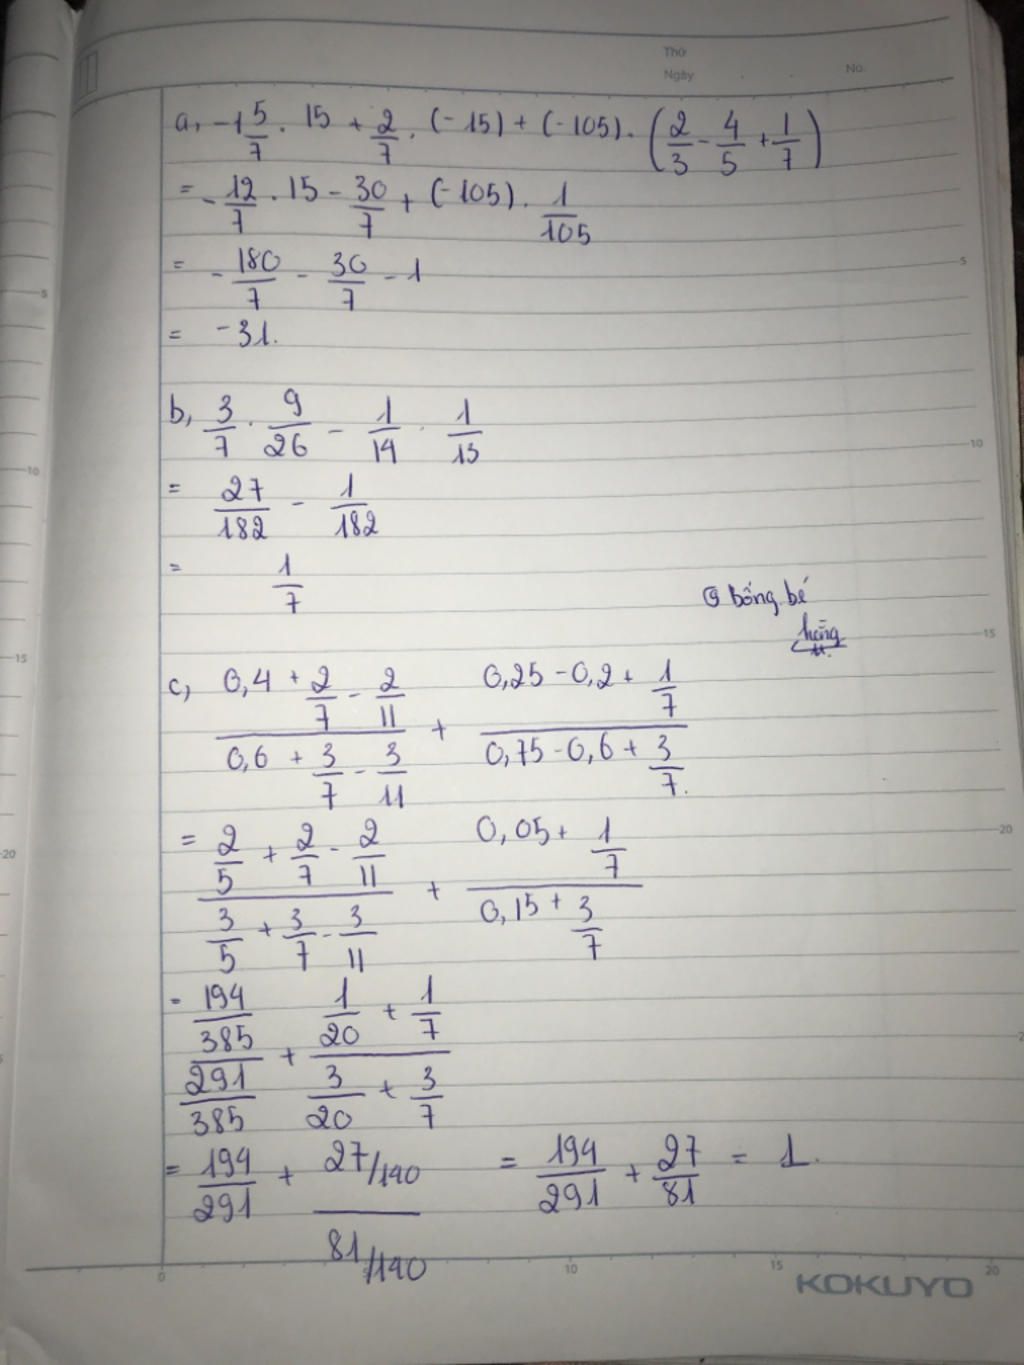 Thứ
Ngày . . No.
a, -1 5/7 . 15 + 2/7 . (-15) + (-105) . (2/3 - 4/5 + 1/7)
= -12/7 . 15 - 30/7 + (-105) . 1/105
= -180/7 - 30/7 - 1
= -31.
b, 3/7 . 9/26 - 1/14 . 1/13
= 27/182 - 1/182
= 1/7
@ bống bé
c, (0,4 + 2/7 - 2/11)/(0,6 + 3/7 - 3/11) + (0,25 - 0,2 + 1/7)/(0,75 - 0,6 + 3/7).
= (2/5 + 2/7 - 2/11)/(3/5 + 3/7 - 3/11) + (0,05 + 1/7)/(0,15 + 3/7)
= (194/385)/(291/385) + (1/20 + 1/7)/(3/20 + 3/7)
= 194/291 + (27/140)/(81/140) = 194/291 + 27/81 = 1.
KOKUYO